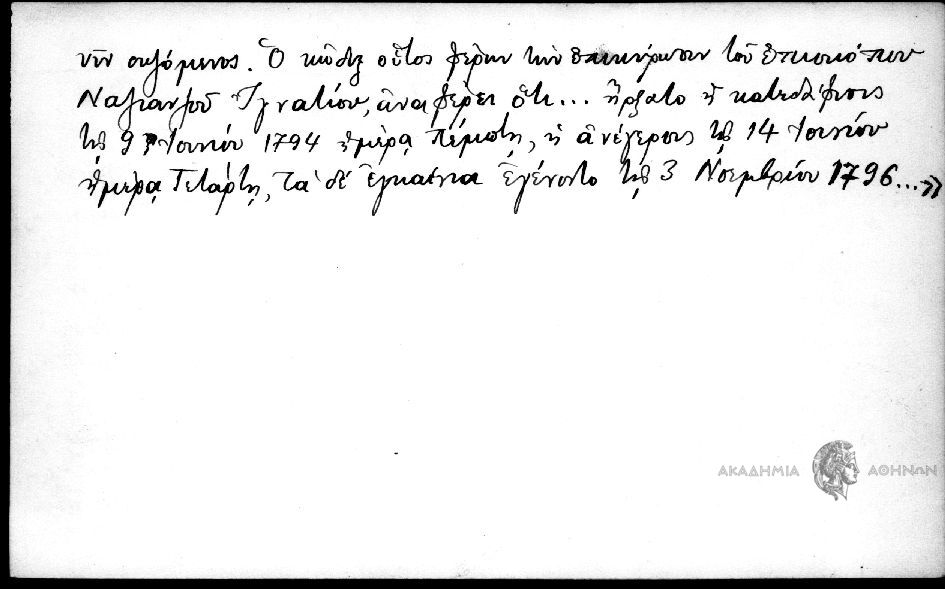 νῦν σωζόμενος. Ὁ κῶδιξ οὗτος φέρων τὴν ἐπικύρωσιν τοῦ ἐπισκόπου
Ναζιανζοῦ Ἰγνατίου, ἀναφέρει ὅτι... ἤρξατο ἡ κατεδάφισις
τῇ 9ῃ Ἰουνίου 1794 ἡμέρᾳ Πέμπτῃ, ἡ ἀνέγερσις τῇ 14 Ἰουνίου
ἡμέρᾳ Τετάρτῃ, τὰ δὲ ἐγκαίνια ἐγένοντο τῇ 3 Νοεμβρίου 1796...»
ΑΚΑΔΗΜΙΑ ΑΘΗΝΩΝ